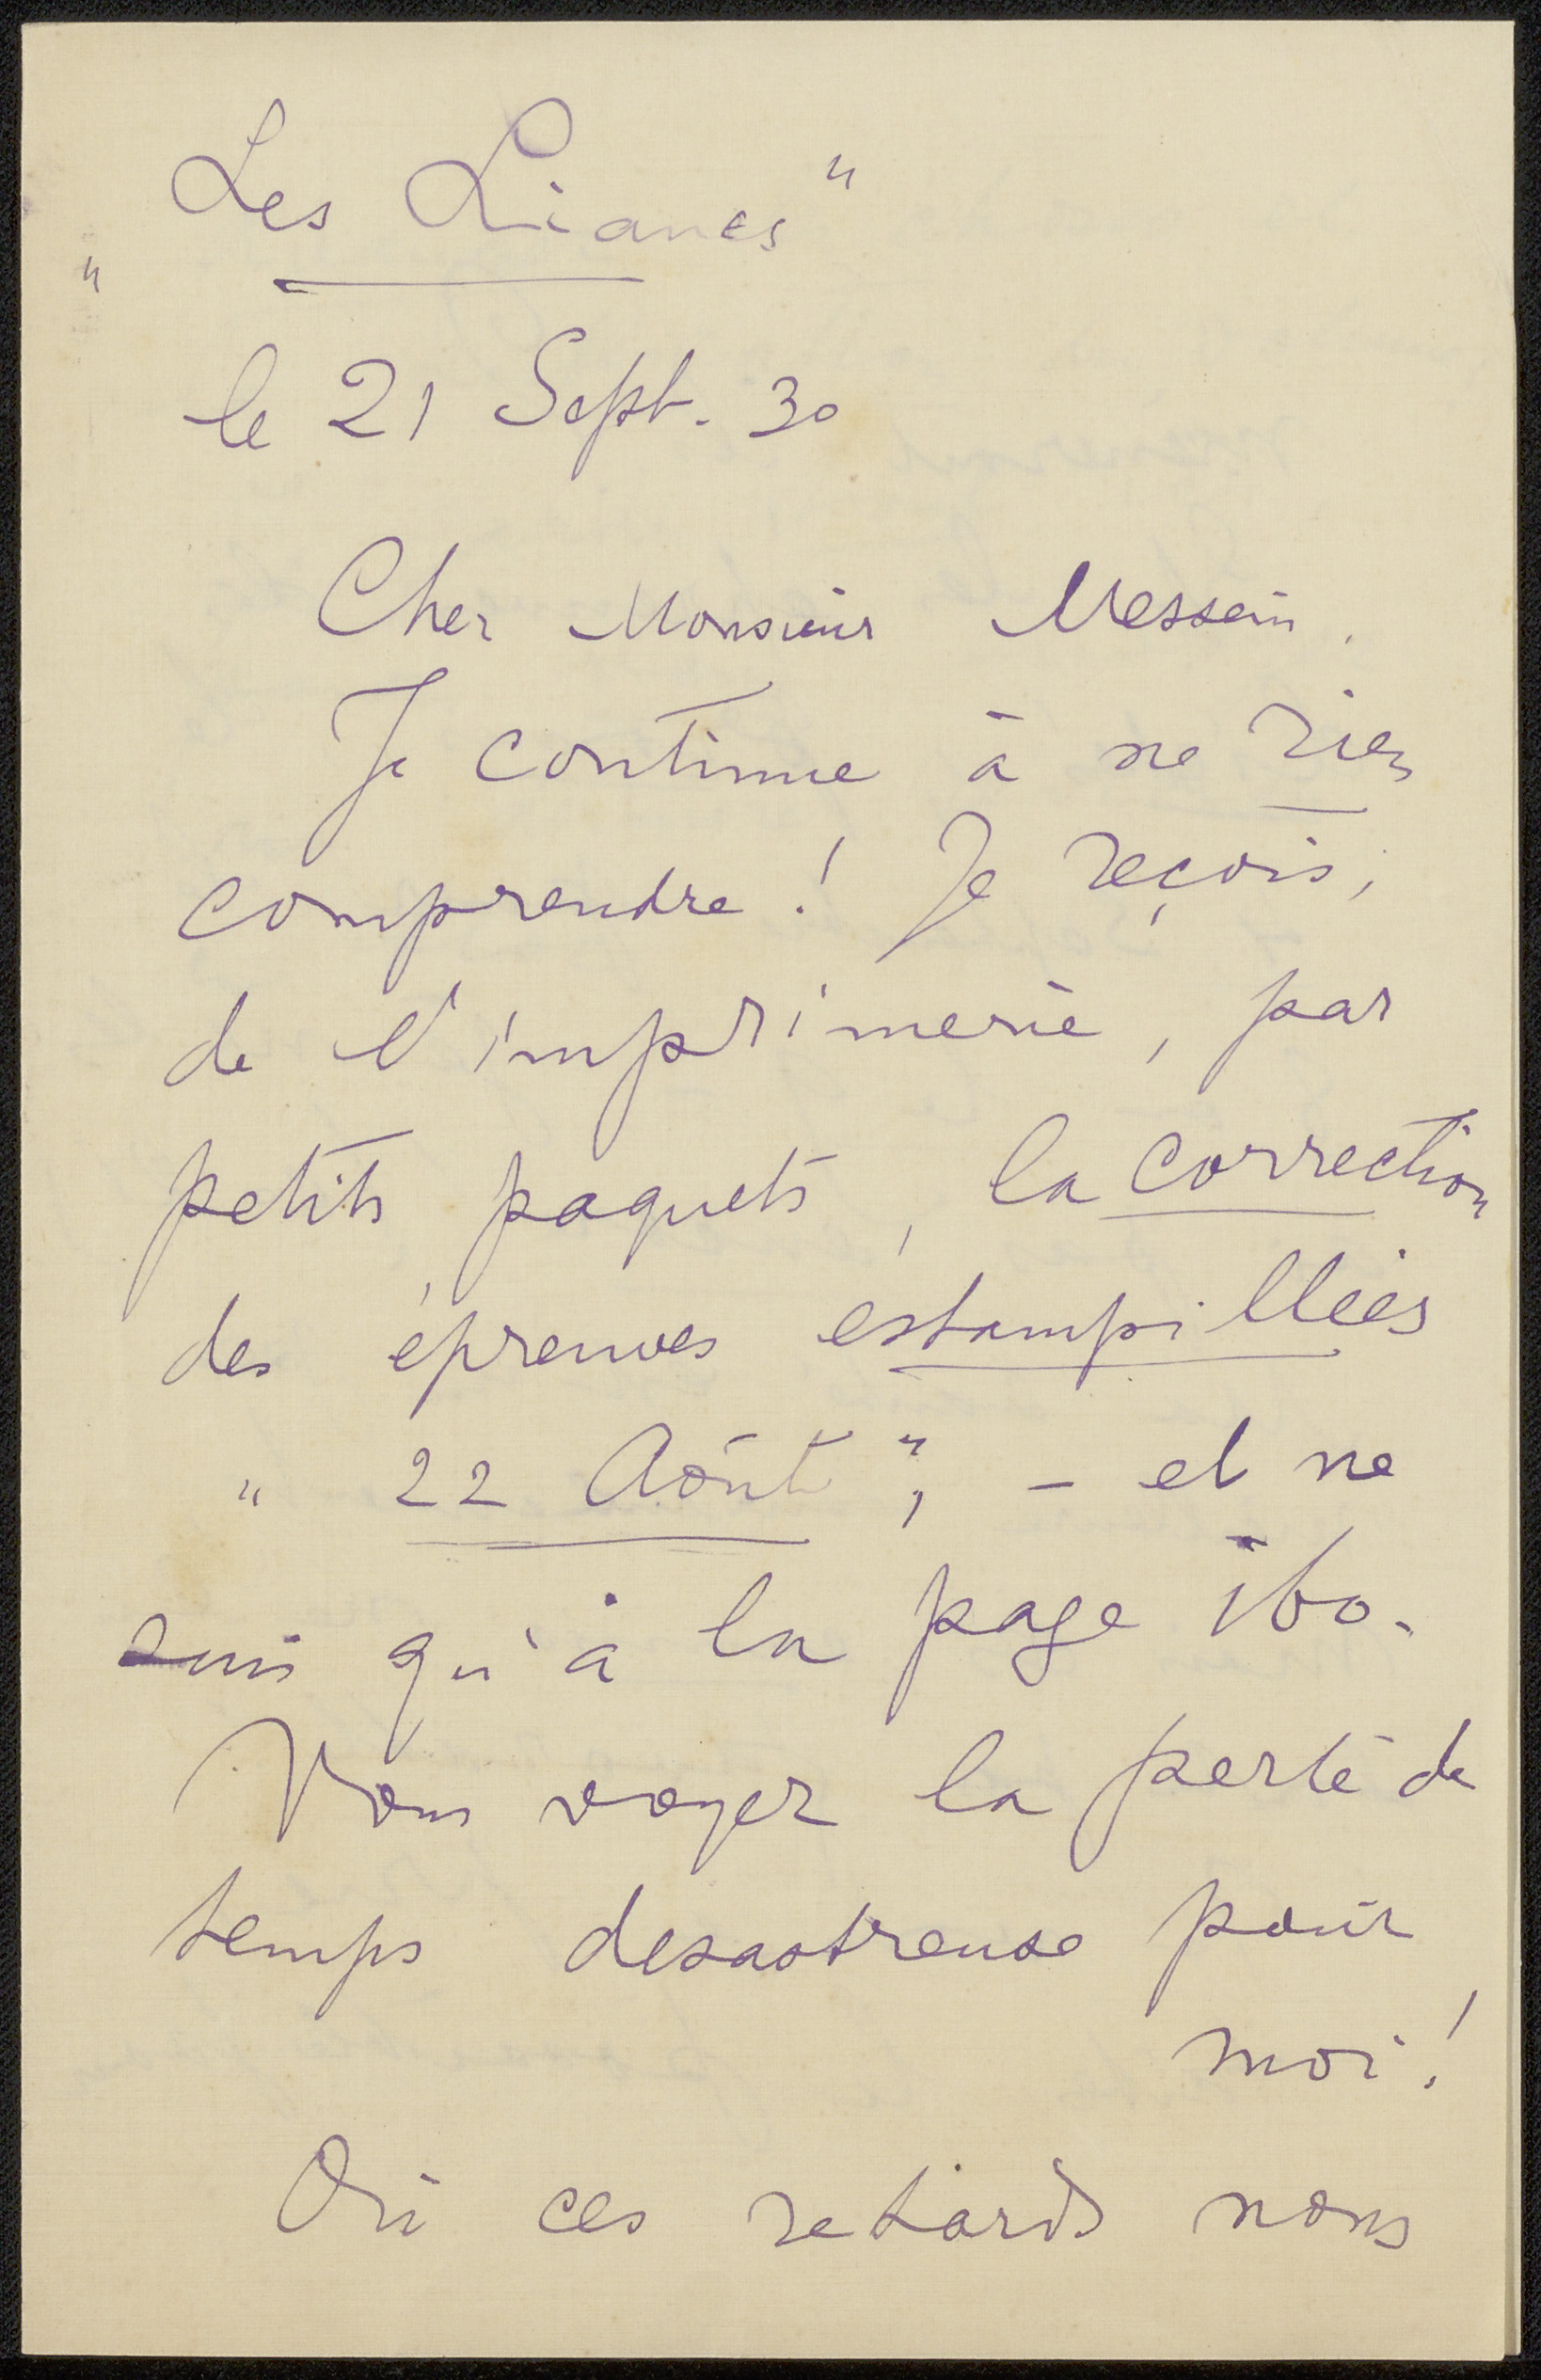 "Les Lianes"
le 21 Sept. 30
Cher Monsieur Messein.
Je continue à ne rien
comprendre! Je reçois,
de l'imprimerie, par
petits paquets, la correction
des épreuves estampillées
"22 Août", - et ne
suis qu'à la page 160.
Vous voyez la perte de
temps desastreuse pour
moi!
Où ces retards nous